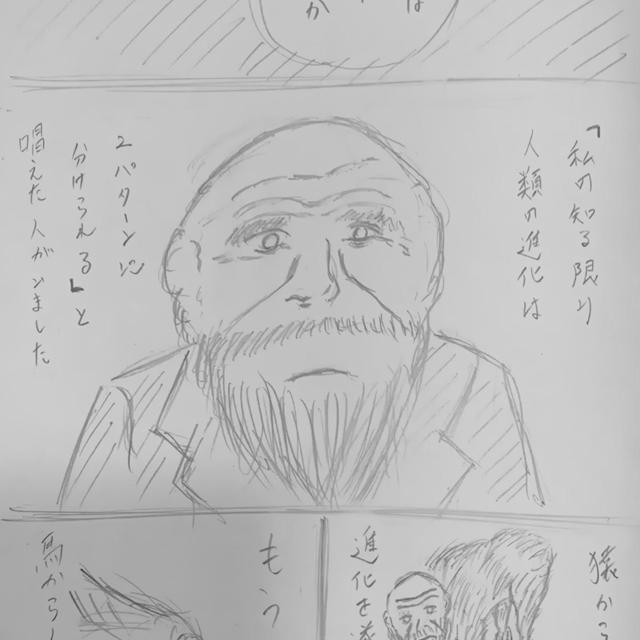 は
か
「私の知る限り
人類の進化は
2パターンに
分けられる」と
唱えた人がいました
猿から
進化を
もう
馬から